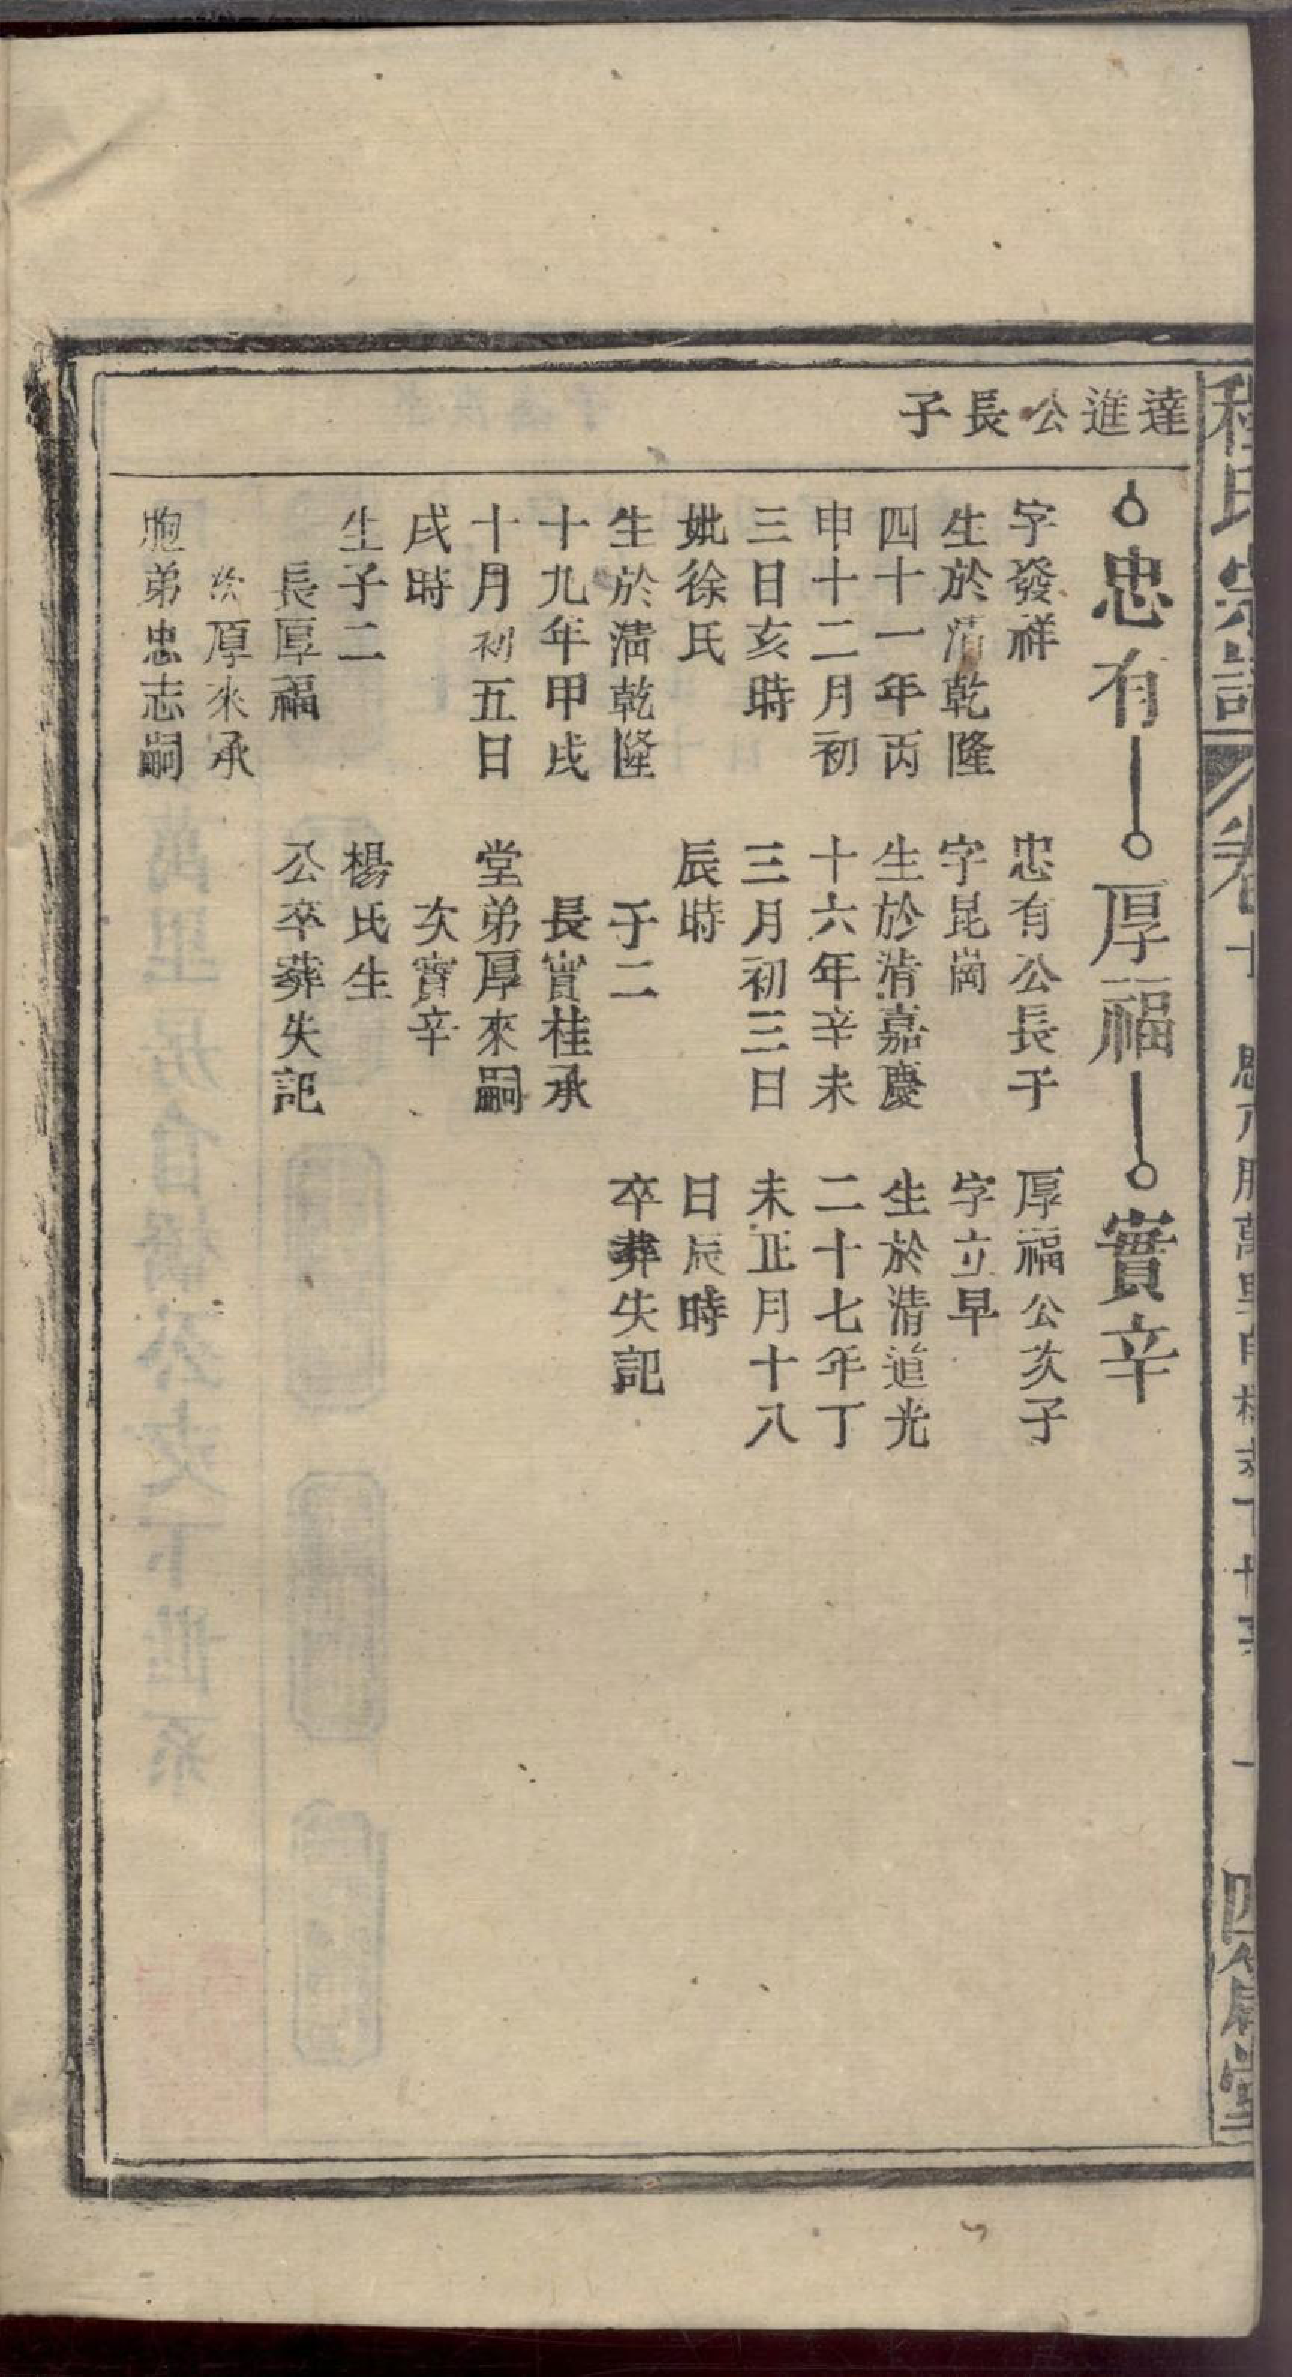 程氏宗譜
卷十
達進公長子
忠有
厚福
實辛
字發祥
生於清乾隆
四十一年丙
申十二月初
三日亥時
妣徐氏
生於清乾隆
十九年甲戌
十月初五日
戌時
生子二
長厚福
次厚來承
胞弟忠志嗣
忠有公長子
字昆崗
生於清嘉慶
十六年辛未
三月初三日
辰時
子二
長實桂承
堂弟厚來嗣
次實辛
楊氏生
公卒葬失記
厚福公次子
字立早
生於清道光
二十七年丁
未正月十八
日辰時
卒葬失記